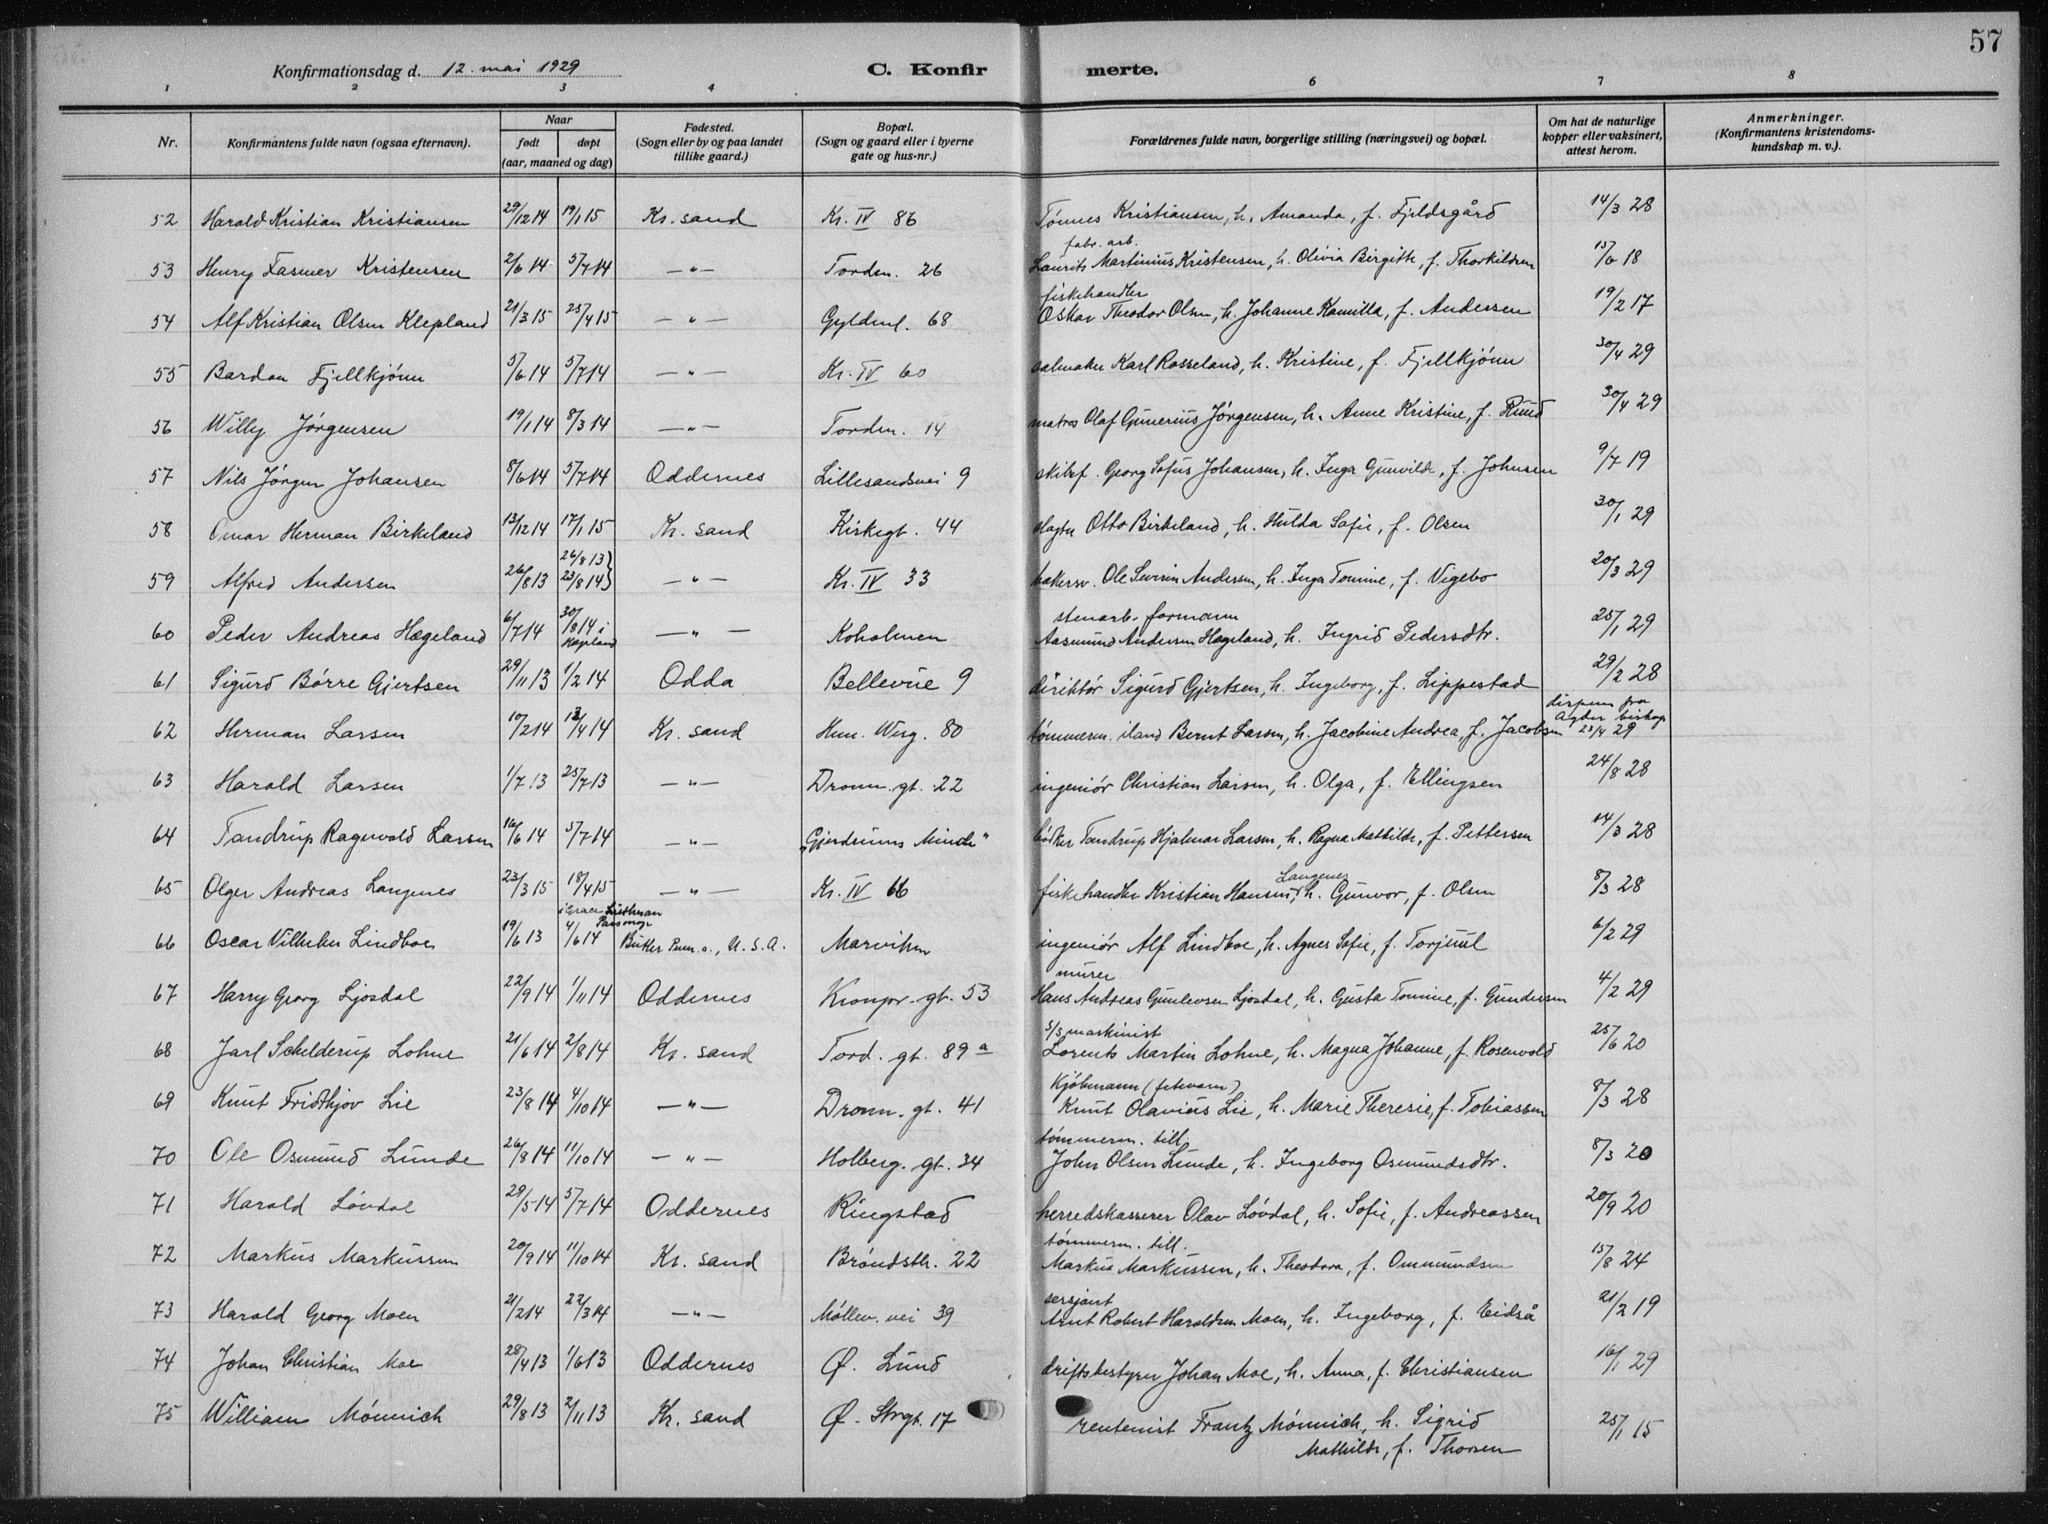 57
Konfirmationsdag d. 12. mai 1929 C. Konfirmerte.
1 2 3 4 5 6 7 8
Nr. Konfirmantens fulde navn (ogsaa efternavn). Naar født døpt (aar, maaned og dag) Fødested. (Sogn eller by og paa landet tillike gaard.) Bopæl. (Sogn og gaard eller i byerne gate og hus-nr.) Forældrenes fulde navn, borgerlige stilling (næringsvei) og bopæl. Om hat de naturlige kopper eller vaksinert, attest herom. Anmerkninger. (Konfirmantens kristendoms-kundskap m. v.).
52 Harald Kristian Kristiansen 29/12 14 19/1 15 Kr. sand Kr. IV 86 Tønnes Kristiansen, h. Amanda, f. Fjeldsgård 14/3 28
fabr. arb.
53 Henry Fasmer Kristensen 2/6 14 5/7 14 —"— Tordn. 26 Laurits Martinius Kristensen, h. Olivia Birgitte, f. Thorkildsen 15/6 18
fiskehandler
54 Alf Kristian Olsen Klepland 21/3 15 25/4 15 —"— Gyldenl. 68 Oskar Theodor Olsen, h. Johanne Kamilla, f. Andersen 19/2 17
55 Bardon Fjellkjønn 5/6 14 5/7 14 —"— Kr. IV 60 salmaker Karl Rosseland, h. Kristine, f. Fjellkjønn 30/4 29
56 Willy Jørgensen 19/1 14 8/3 14 —"— Tordn. 14 matros Olaf Gunerius Jørgensen, h. Anne Kristine, f. Ruud 30/4 29
57 Nils Jørgen Johansen 8/6 14 5/7 14 Oddernes Lillesandsvei 9 skibsf. Georg Sofus Johansen, h. Inga Gunvilde, f. Johnsen 9/7 19
58 Omar Herman Birkeland 13/12 14 17/1 15 Kr. sand Kirkegt. 44 slagter Otto Birkeland, h. Hulda Sofie, f. Olsen 30/1 29
26/8 13}
59 Alfred Andersen 26/8 13 23/8 14} —"— Kr. IV 33 bakersv. Ole Severin Andersen, h. Inga Tomine, f. Vigebo 20/3 29
stenarb. formann
60 Peder Andreas Hægeland 6/7 14 30/8 14 i Hægeland —"— Koholmen Aasmund Andersen Hægeland, h. Ingrid Pedersdtr. 25/1 29
61 Sigurd Børre Gjertsen 29/11 13 1/2 14 Odda Bellevue 9 direktør Sigurd Gjertsen, h. Ingeborg, f. Lippestad 29/2 28
62 Herman Larsen 10/2 14 13/4 14 Kr. sand Hen. Werg. 80 tømmerm. iland Bernt Larsen, h. Jacobine Andrea, f. Jacobsen dispens fra Agder biskop 23/4 29
63 Harald Larsen 1/7 13 25/7 13 —"— Dronn. gt. 22 ingeniør Christian Larsen, h. Olga, f. Ellingsen 24/8 28
64 Tandrup Ragnvald Larsen 16/6 14 5/7 14 —"— „Gjerdrums Minde" bøtker Tandrup Hjalmar Larsen, h. Ragna Mathilde, f. Pettersen 14/3 28
65 Olger Andreas Langenes 23/3 15 18/4 15 —"— Kr. IV 66 fiskehandler Kristian Hansen Langenes, h. Gunvor, f. Olsen 8/3 28
66 Oscar Vilhelm Lindboe 19/6 13 4/6 14 i Grace Lutheran Parsonage Butler Penn.a., U.S.A. Marvihn ingeniør Alf Lindboe, h. Agnes Sofie, f. Torjuul 6/2 29
murer
67 Harry Georg Ljosdal 22/9 14 1/11 14 Oddernes Kronpr. gt. 53 Hans Andreas Gunlevsen Ljosdal, h. Gusta Tomine, f. Gundersen 4/2 29
s/s maskinist
68 Jarl Schelderup Lohne 21/6 14 2/8 14 Kr. sand Tord. gt. 89 a Lorents Martin Lohne, h. Magna Johanne, f. Rosenvold 25/6 20
Kjøbmann (fetevarer)
69 Knut Fridthjov Lie 23/8 14 4/10 14 —"— Dronn. gt. 41 Knut Olavius Lie, h. Marie Theresie, f. Tobiassen 8/3 28
tømmerm. till.
70 Ole Osmund Lunde 26/8 14 11/10 14 —"— Holberg. gt. 34 John Olsen Lunde, h. Ingeborg Osmundsdtr. 8/3 20
71 Harald Løvdal 29/5 14 5/7 14 Oddernes Ringstad herredskasserer Olav Løvdal, h. Sofie, f. Andreassen 20/9 20
tømmerm. till.
72 Markus Markussen 20/9 14 11/10 14 Kr. sand Brøndstr. 22 Markus Markussen, h. Theodora, f. Ommundsen 15/8 24
sersjant
73 Harald Georg Moen 21/2 14 22/3 14 —"— Møllev. vei 39 Arnt Robert Haraldsen Moen, h. Ingeborg, f. Eidså 21/2 19
74 Johan Christian Moe 28/4 13 1/6 13 Oddernes Ø. Lund driftsbestyrer Johan Moe, h. Anna, f. Christiansen 16/1 29
75 William Mönnich 29/8 13 2/11 13 Kr. sand Ø. Strgt. 17 rentenist Frantz Mönnich, h. Sigrid 25/1 15
Mathilde, f. Thorsen